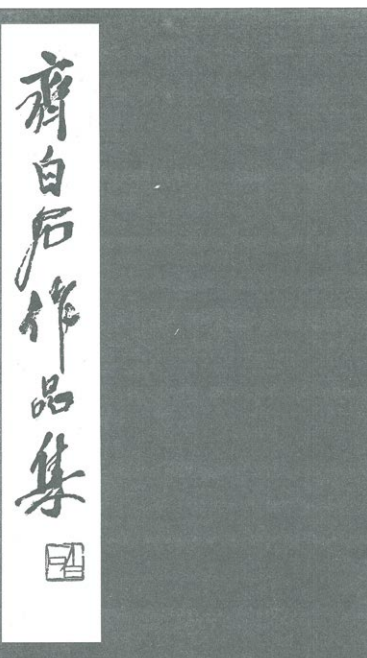 齊白石作品集